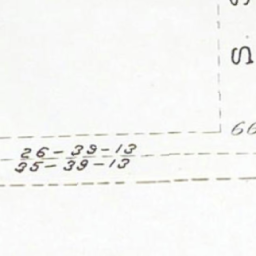 S
66
26-39-13
35-39-13